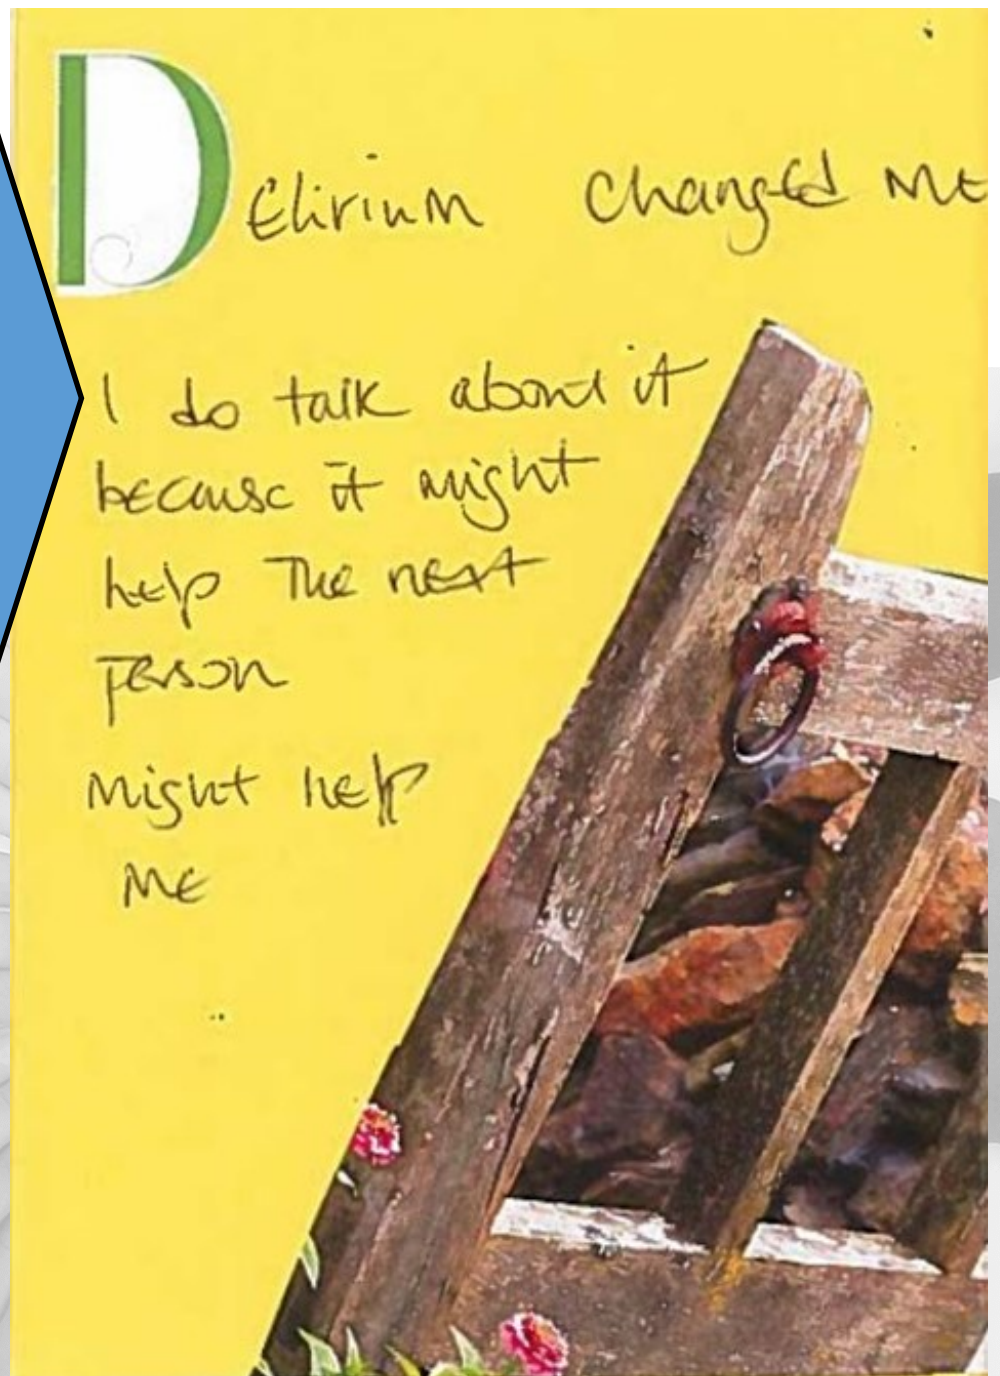 Delirium changed me
I do talk about it
because it might
help The next
person
Might help
Me